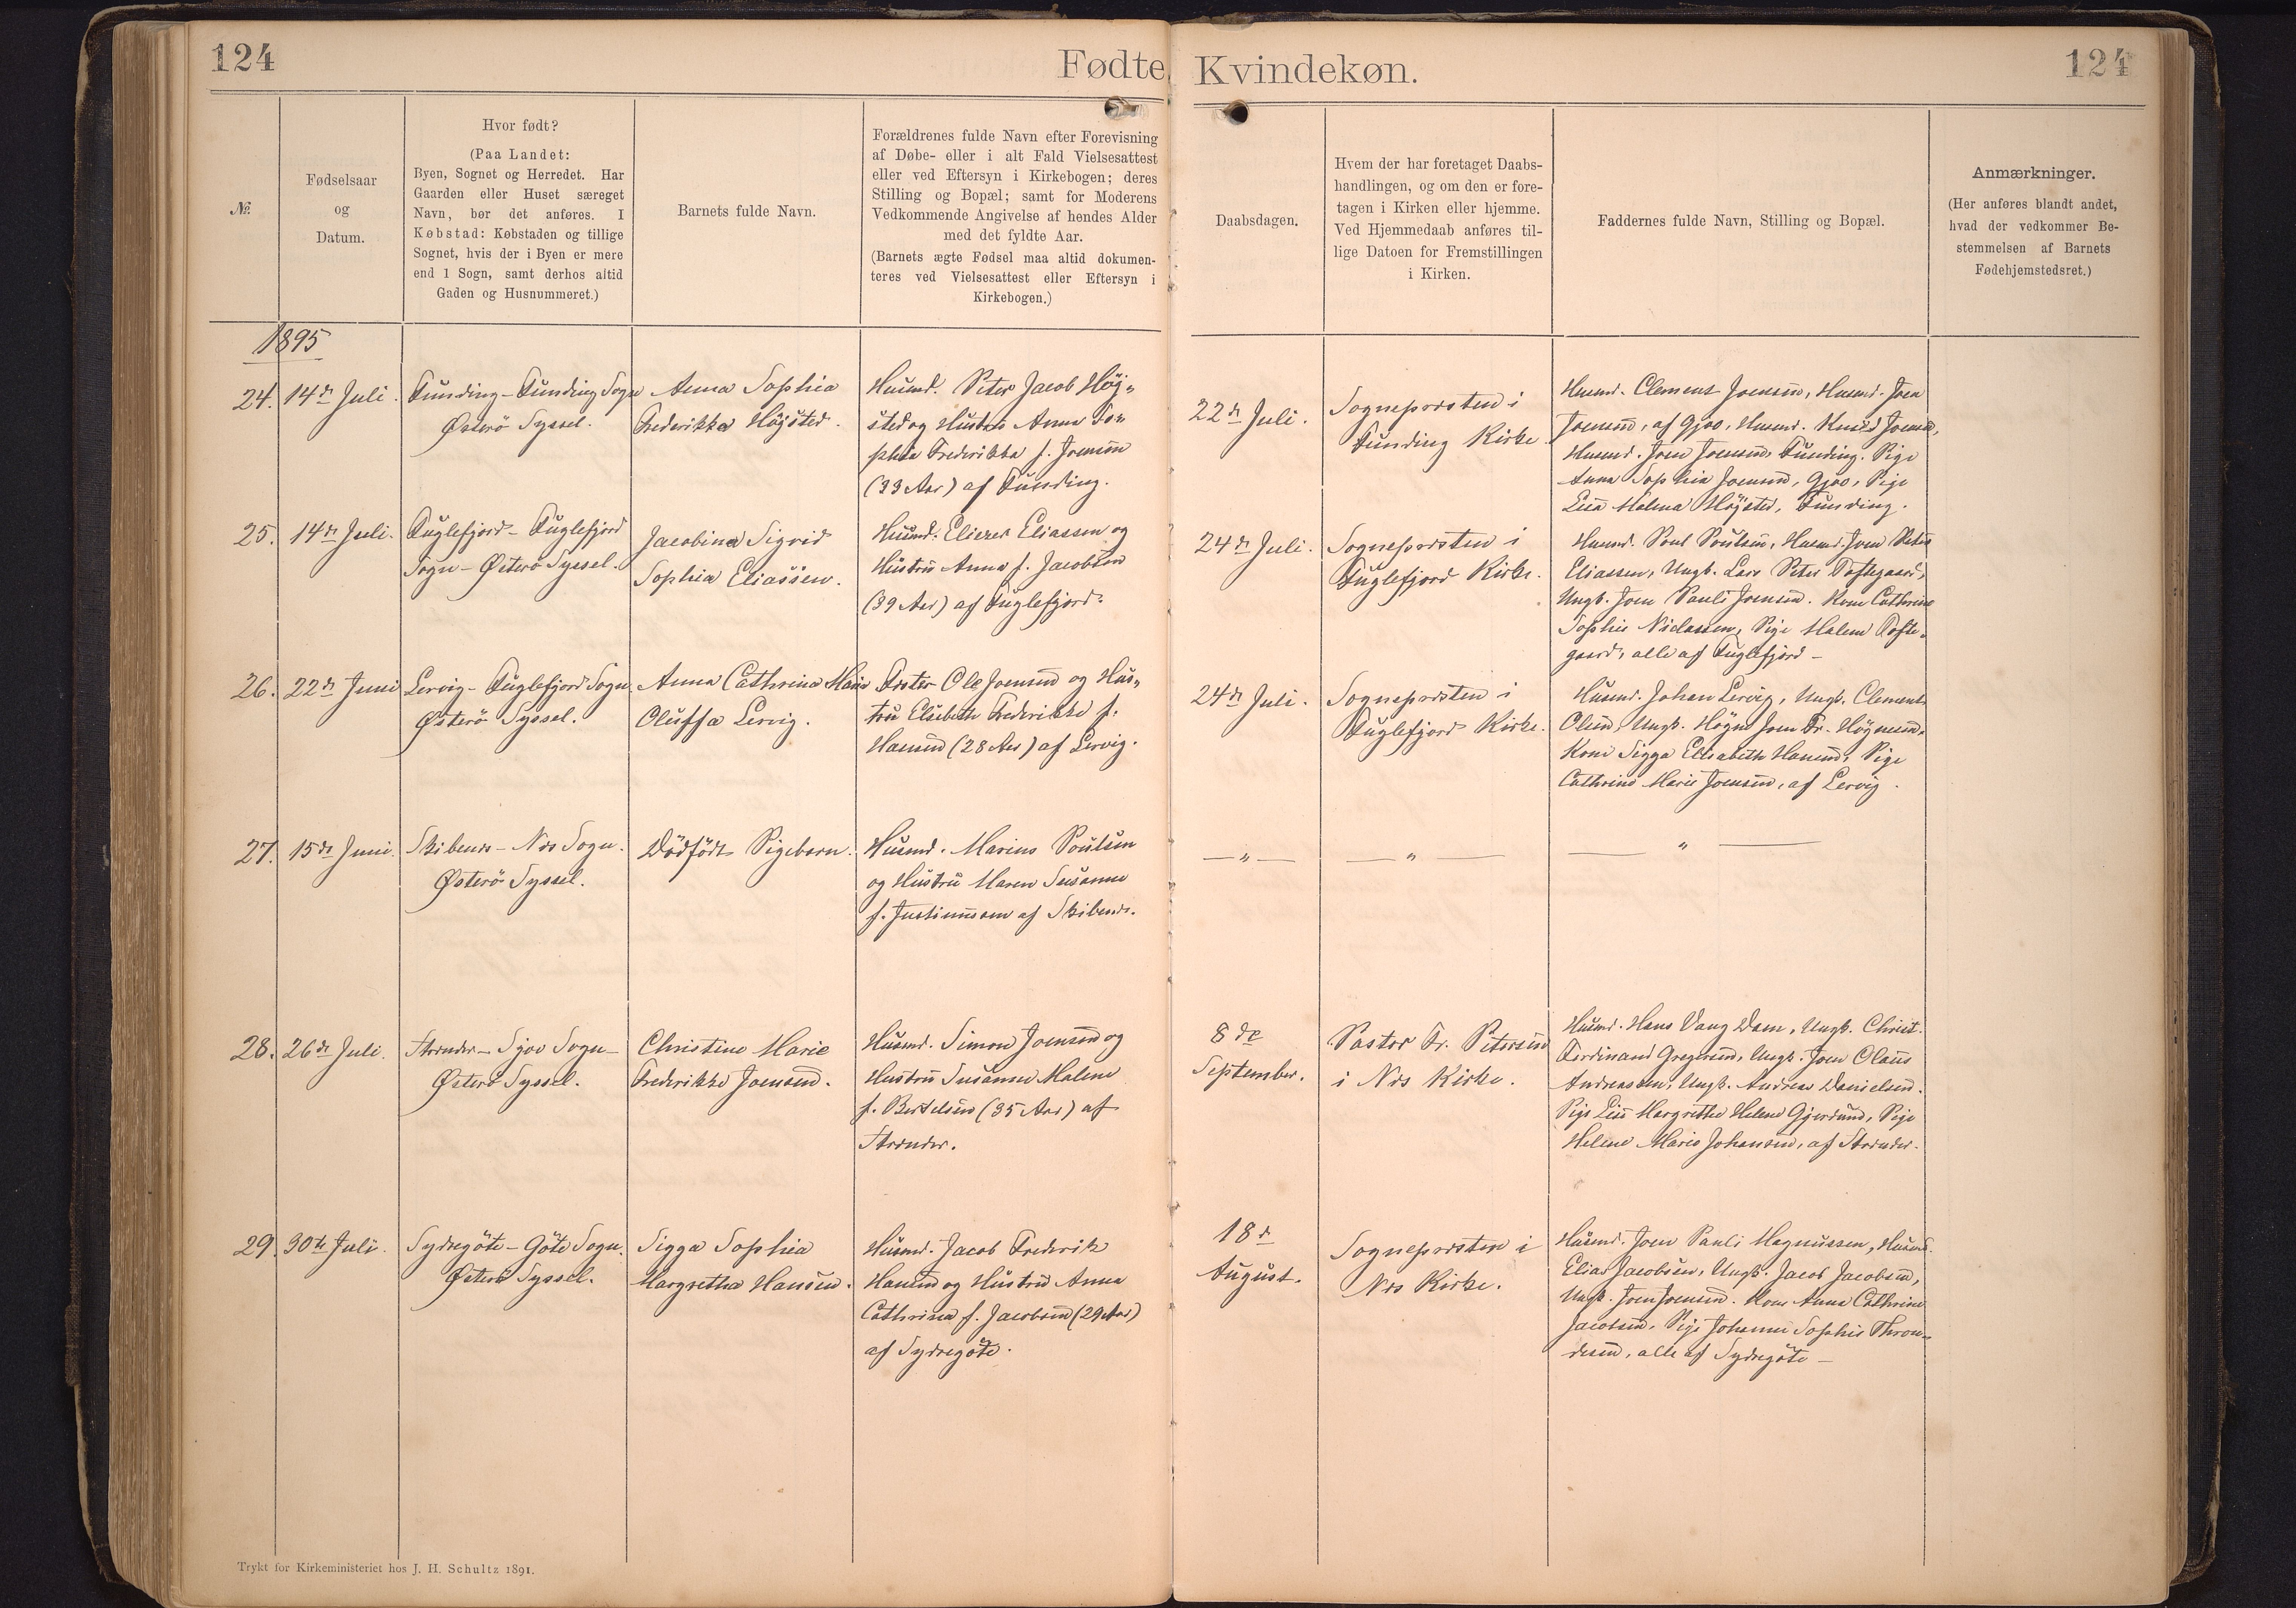 124
Fødte
Kvindekøn.
124
№
Fødselsaar
og
Datum.
Hvor født?
(Paa Landet:
Byen, Sognet og Herredet. Har
Gaarden eller Huset særeget
Navn, bør det anføres. I
Købstad: Købstaden og tillige
Sognet, hvis der i Byen er mere
end 1 Sogn, samt derhos altid
Gaden og Husnummeret.)
Barnets fulde Navn.
Forældrenes fulde Navn efter Forevisning
af Døbe- eller i alt Fald Vielsesattest
eller ved Eftersyn i Kirkebogen; deres
Stilling og Bopæl; samt for Moderens
Vedkommende Angivelse af hendes Alder
med det fyldte Aar.
(Barnets ægte Fødsel maa altid dokumen-
teres ved Vielsesattest eller Eftersyn i
Kirkebogen.)
Daabsdagen.
Hvem der har foretaget Daabs-
handlingen, og om den er fore-
tagen i Kirken eller hjemme.
Ved Hjemmedaab anføres til-
lige Datoen for Fremstillingen
i Kirken.
Faddernes fulde Navn, Stilling og Bopæl.
Anmærkninger.
(Her anføres blandt andet,
hvad der vedkommer Be-
stemmelsen af Barnets
Fødehjemstedsret.)
1895
24. 14de Juli.
Funding - Funding Sogn
Østerö Syssel.
Anna Sophia
Frederikka Höjsted.
Husmd. Peter Jacob Höj-
sted og Hustru Anna So-
phia Frederikka f. Joensen
(33 Aar) af Funding.
22de Juli.
Sognepræsten i
Funding Kirke.
Husmd. Clement Joensen, Husmd. Joen
Joensen, af Gjov, Husmd. Knud Joensen,
Husmd. Joen Joensen, Funding. Pige
Anna Sophia Joensen, Gjov, Pige
Lisa Malena Höjsted, Funding.
25. 14de Juli.
Fuglefjord - Fuglefjord
Sogn - Østerö Syssel.
Jacobina Sigrid
Sophia Eliassen.
Husmd. Eliezer Eliassen og
Hustru Anna f. Jacobsen
(39 Aar) af Fuglefjord.
24de Juli.
Sognepræsten i
Fuglefjord Kirke.
Husmd. Poul Poulsen, Husmd. Joen Peter
Eliassen, Ungk. Lars Peter Toftegaard,
Ungk. Joen Pauli Joensen. Kone Cathrine
Sophie Niclassen, Pige Malene Tofte-
gaard, alle af Fuglefjord -
26. 22de Juni
Lervig - Fuglefjord Sogn
Østerö Syssel.
Anna Cathrina Maria
Oluffa Lervig.
Fister Ole Joensen og Hus-
tru Elsebeth Frederikke f.
Hansen (28 Aar) af Lervig.
24de Juli.
Sognepræsten i
Fuglefjord Kirke.
Husmd. Johan Lervig, Ungk. Clement
Olsen, Ungk. Högne Joen Fr. Högnesen.
Kone Sigga Elisabeth Hansen, Pige
Cathrine Marie Joensen, af Lervig.
27. 15de Juni.
Skibenæs - Næs Sogn.
Østerö Syssel.
Dödfödt Pigebarn.
Husmd. Marius Poulsen
og Hustru Maren Susanne
f. Justinussen af Skibenæs.
— " —
— " —
— " —
28. 26de Juli.
Strænder - Sjov Sogn -
Østerö Syssel.
Christine Marie
Frederikke Joensen.
Husmd. Simon Joensen og
Hustru Susanne Malene
f. Bertelsen (35 Aar) af
Strænder.
8de
September.
Pastor Fr. Petersen
i Næs Kirke.
Husmd. Hans Vang Dam, Ungk. Christ.
Ferdinand Gregersen, Ungk. Joen Olaus
Andreassen, Ungk. Andreas Danielsen.
Pige Lise Margrethe Helene Gjerdum, Pige
Helene Marie Johansen, af Strænder.
29. 30te Juli.
Sydregöte - Göte Sogn.
Østerö Syssel.
Sigga Sophia
Margretha Hansen.
Husmd. Jacob Frederik
Hansen og Hustru Anna
Cathrina f. Jacobsen (29 Aar)
af Sydregöte.
18de
August.
Sognepræsten i
Næs Kirke.
Husmd. Joen Pauli Magnussen, Husmd.
Elias Jacobsen, Ungk. Jacob Jacobsen,
Ungk. Joen Joensen. Kone Anna Cathrine
Jacobsen, Pige Johanne Sophie Thron-
desen, alle af Sydregöte -
Trykt for Kirkeministeriet hos J. H. Schultz 1891.